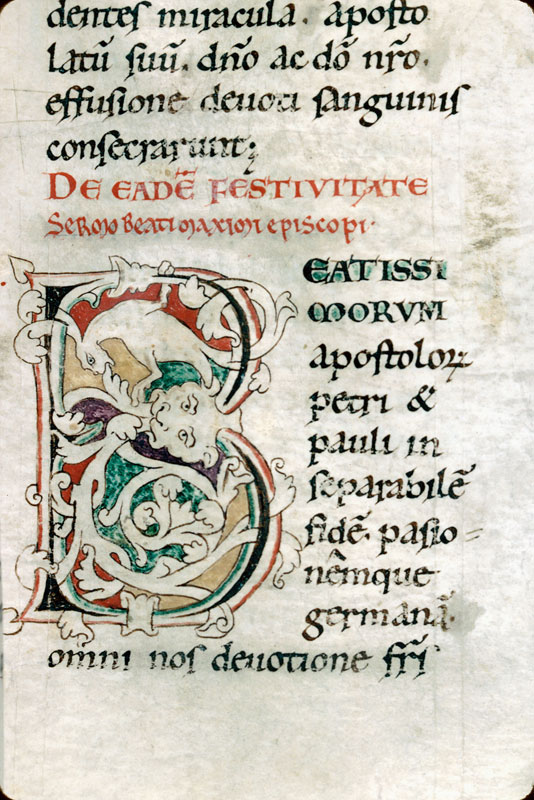 dentes miracula. aposto
latū suū. dn̄o ac dō nr̄o.
effusione deuoti sanguinis
consecrarunt;
DE EADĒ FESTIVITATE
Sermo beati maximi episcopi.
BEATISSI
MORVM
apostoloꝝ
petri &
pauli in
separabilē
fidē. pasio=
nēmque
germanā.
om̄i nos deuotione fr̄i